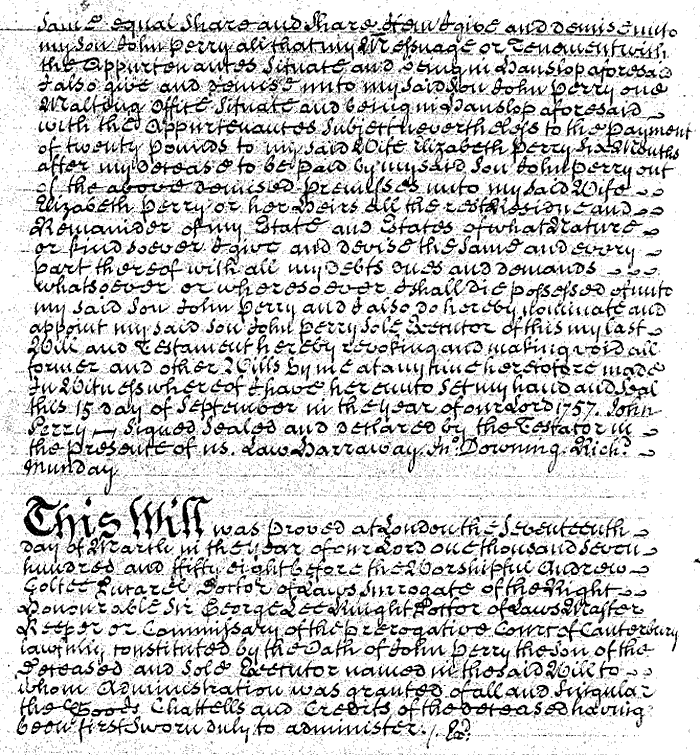 same equal Share and Share Item I give and demise unto
my Son John Perry all that my Messuage or Tenement with
the Appurtenances Situate and being in Hanslop aforesaid
I also give and demise unto my said Son John Perry one
Malting Office Situate and being in Hanslop aforesaid
with the Appurtenances Subject nevertheless to the Payment
of twenty Pounds to my said Wife Elizabeth Perry Six Months
after my decease to be paid by my said Son John Perry out
of the above demised Premisses unto my said Wife
Elizabeth Perry or her Heirs All the rest Residue and
Remainder of my Estate and Estates of what Nature
or kind soever I give and devise the same and every
part thereof with all my Debts dues and demands
whatsoever or wheresoever I shall die possessed of unto
my said Son John Perry and I also do hereby nominate and
appoint my said Son John Perry Sole Executor of this my last
Will and Testament hereby revoking and making void all
former and other Wills by me at any time heretofore made
In Witness whereof I have hereunto set my hand and Seal
this 15 day of September in the year of our Lord 1757. John
Perry – Signed Sealed and declared by the Testator in
the presence of us. Law: Harraway. Jno. Downing. Richd.
Munday
This Will was proved at London the Seventeenth
day of March in the year of our Lord one thousand Seven
hundred and fifty eight before the Worshipful Andrew
Coltee Ducarel Doctor of Laws Surrogate of the Right
Honourable Sir George Lee Knight Doctor of Laws Master
Keeper or Commissary of the Prerogative Court of Canterbury
lawfully constituted by the Oath of John Perry the Son of the
deceased and Sole Executor named in the said Will to
whom Administration was granted of all and Singular
the Goods Chattells and Credits of the deceased having
been first Sworn duly to administer. /. Ex.